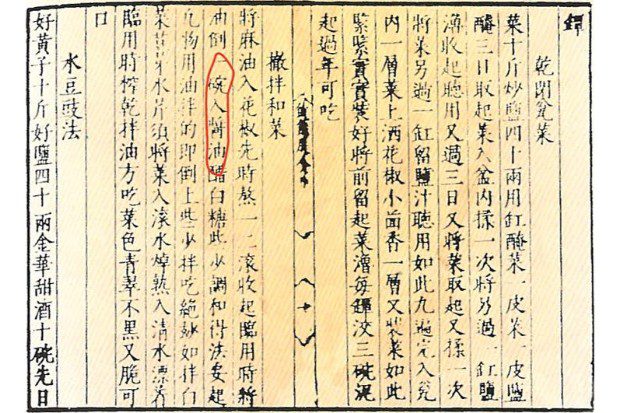 罈
乾閉瓮菜
菜十斤炒鹽四十兩用缸醃菜一皮菜一皮鹽
醃三日取起菜入盆內揉一次將另過一缸鹽
滷收起聽用又過三日又將菜取起又揉一次
將菜另過一缸留鹽汁聽用如此九遍完入瓮
內一層菜上洒花椒小茴香一層又裝菜如此
緊緊實實裝好將前留起菜滷每罈澆三碗泥
起過年可吃
撒拌和菜
將麻油入花椒先時熬一二滾收起臨用時將
油倒一碗入醬油醋白糖些少調和得法安起
凡物用油拌的即倒上些少拌吃絕妙如拌白
菜荳芽水芹須將菜入滾水焯熟入清水漂著
臨用時榨乾拌油方吃菜色青翠不黑又脆可
口
水豆豉法
好黃子十斤好鹽四十兩金華甜酒十碗先日